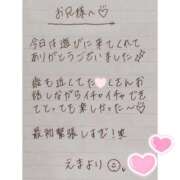 お兄様へ♡
今日は遊びに来てくれて
ありがとうございました♪
歳も近くてた
くさんお
話しながらイチャイチャでき
てとっても楽しかった〜♡
最初緊張しまし!笑
えまより☺